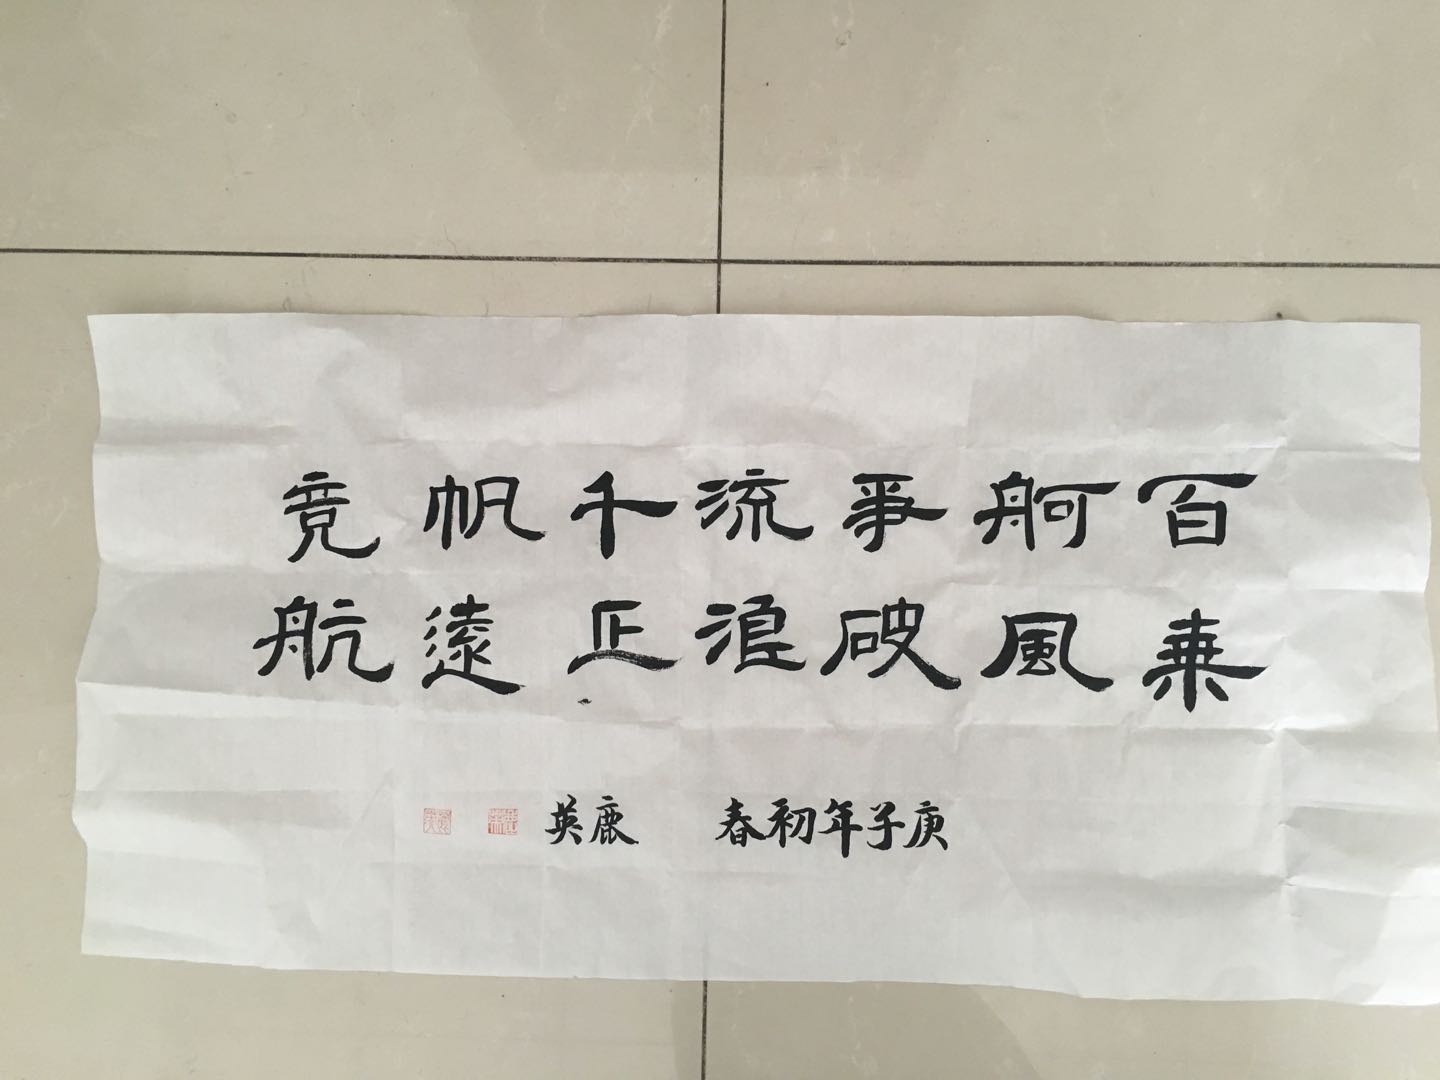 百舸爭流千帆竞
乘風破浪正遠航
庚子年初春 鹿英